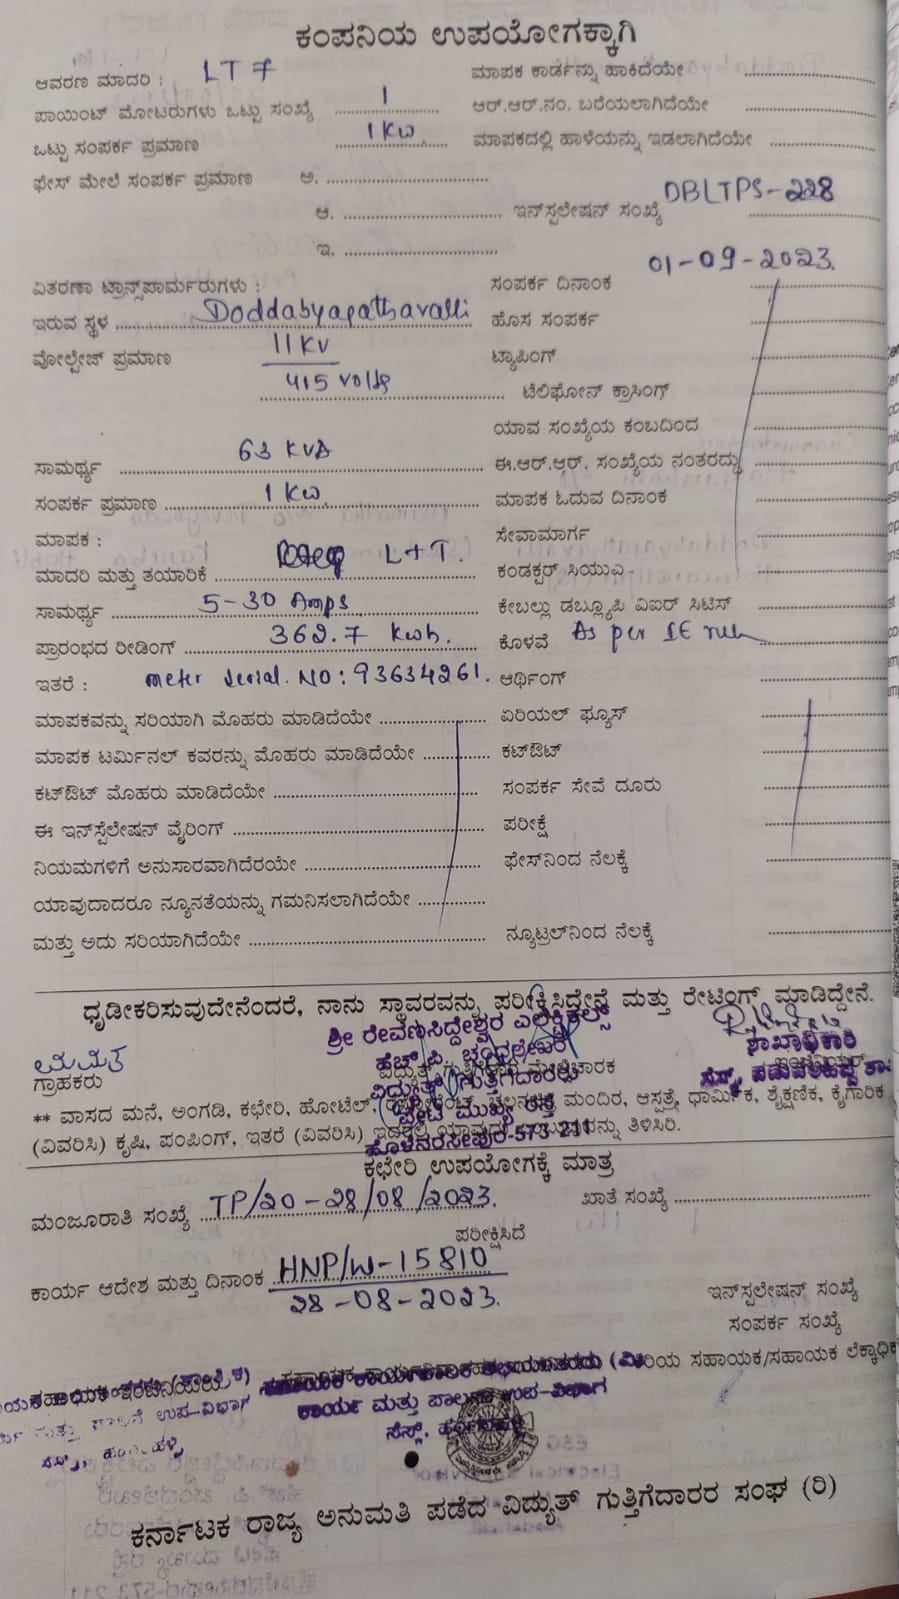 ಕಂಪನಿಯ ಉಪಯೋಗಕ್ಕಾಗಿ
ಆವರಣ ಮಾದರಿ : LT 7
ಮಾಪಕ ಕಾರ್ಡನ್ನು ಹಾಕಿದೆಯೇ
ಪಾಯಿಂಟ್ ಮೋಟರುಗಳು ಒಟ್ಟು ಸಂಖ್ಯೆ 1
ಆರ್.ಆರ್.ನಂ. ಬರೆಯಲಾಗಿದೆಯೇ
ಒಟ್ಟು ಸಂಪರ್ಕ ಪ್ರಮಾಣ 1 Kw.
ಮಾಪಕದಲ್ಲಿ ಹಾಳೆಯನ್ನು ಇಡಲಾಗಿದೆಯೇ
ಫೇಸ್ ಮೇಲೆ ಸಂಪರ್ಕ ಪ್ರಮಾಣ ಅ.
ಆ.
ಇನ್‌ಸ್ಪಲೇಷನ್ ಸಂಖ್ಯೆ DBLTPS-228
ಇ.
ವಿತರಣಾ ಟ್ರಾನ್ಸ್‌ಪಾರ್ಮರುಗಳು :
ಸಂಪರ್ಕ ದಿನಾಂಕ 01-09-2023.
ಇರುವ ಸ್ಥಳ Doddabyagathavalli
ಹೊಸ ಸಂಪರ್ಕ
ವೋಲ್ಟೇಜ್ ಪ್ರಮಾಣ 11 KV
415 volts
ಟ್ಯಾಪಿಂಗ್
ಟೆಲಿಫೋನ್ ಕ್ರಾಸಿಂಗ್
ಯಾವ ಸಂಖ್ಯೆಯ ಕಂಬದಿಂದ
ಸಾಮರ್ಥ್ಯ 63 KVA
ಈ.ಆರ್.ಆರ್. ಸಂಖ್ಯೆಯ ನಂತರದ್ದು
ಸಂಪರ್ಕ ಪ್ರಮಾಣ 1 Kw.
ಮಾಪಕ ಓದುವ ದಿನಾಂಕ
ಮಾಪಕ :
ಸೇವಾಮಾರ್ಗ
ಮಾದರಿ ಮತ್ತು ತಯಾರಿಕೆ L+T.
ಕಂಡಕ್ಟರ್ ಸಿಯುಎ
ಸಾಮರ್ಥ್ಯ 5-30 Amps
ಕೇಬಲ್ಲು ಡಬ್ಲ್ಯೂಪಿ ವಿಐರ್ ಸಿಟಿಸ್
ಪ್ರಾರಂಭದ ರೀಡಿಂಗ್ 362.7 Kwh.
ಕೊಳವೆ As per IE rules
ಇತರೆ : meter serial. NO: 93634261.
ಆರ್ಥಿಂಗ್
ಮಾಪಕವನ್ನು ಸರಿಯಾಗಿ ಮೊಹರು ಮಾಡಿದೆಯೇ
ಏರಿಯಲ್ ಫ್ಯೂಸ್
ಮಾಪಕ ಟರ್ಮಿನಲ್ ಕವರನ್ನು ಮೊಹರು ಮಾಡಿದೆಯೇ
ಕಟ್‌ಔಟ್
ಕಟ್‌ಔಟ್ ಮೊಹರು ಮಾಡಿದೆಯೇ
ಸಂಪರ್ಕ ಸೇವೆ ದೂರು
ಈ ಇನ್‌ಸ್ಪೆಲೇಷನ್ ವೈರಿಂಗ್
ಪರೀಕ್ಷೆ
ನಿಯಮಗಳಿಗೆ ಅನುಸಾರವಾಗಿದೆರಯೇ
ಫೇಸ್‌ನಿಂದ ನೆಲಕ್ಕೆ
ಯಾವುದಾದರೂ ನ್ಯೂನತೆಯನ್ನು ಗಮನಿಸಲಾಗಿದೆಯೇ
ಮತ್ತು ಅದು ಸರಿಯಾಗಿದೆಯೇ
ನ್ಯೂಟ್ರಲ್‌ನಿಂದ ನೆಲಕ್ಕೆ
ಧೃಡೀಕರಿಸುವುದೇನೆಂದರೆ, ನಾನು ಸ್ಥಾವರವನ್ನು ಪರೀಕ್ಷಿಸಿದ್ದೇನೆ ಮತ್ತು ರೇಟಿಂಗ್ ಮಾಡಿದ್ದೇನೆ.
ಶ್ರೀ ರೇವಣಸಿದ್ದೇಶ್ವರ ಎಲೆಕ್ಟ್ರಿಕಲ್ಸ್
ಹೆಚ್.ಪಿ. ಚಂದ್ರಶೇಖರ್
ಶಾಖಾಧಿಕಾರಿ
ಗ್ರಾಹಕರು
ವಿದ್ಯುತ್ ಗುತ್ತಿಗೆದಾರರು
ಪೇಟೆ ಮುಖ್ಯ ರಸ್ತೆ
ಹೊಳೆನರಸೀಪುರ-573 211
** ವಾಸದ ಮನೆ, ಅಂಗಡಿ, ಕಛೇರಿ, ಹೋಟೆಲ್, ಮಂದಿರ, ಆಸ್ಪತ್ರೆ, ಧಾರ್ಮಿಕ, ಶೈಕ್ಷಣಿಕ, ಕೈಗಾರಿಕ
(ವಿವರಿಸಿ) ಕೃಷಿ, ಪಂಪಿಂಗ್, ಇತರೆ (ವಿವರಿಸಿ) ತಿಳಿಸಿರಿ.
ಕಛೇರಿ ಉಪಯೋಗಕ್ಕೆ ಮಾತ್ರ
ಮಂಜೂರಾತಿ ಸಂಖ್ಯೆ TP/20-28/08/2023.
ಖಾತೆ ಸಂಖ್ಯೆ
ಪರೀಕ್ಷಿಸಿದೆ
ಕಾರ್ಯ ಆದೇಶ ಮತ್ತು ದಿನಾಂಕ HNP/W-15810
28-08-2023.
ಇನ್‌ಸ್ಪಲೇಷನ್ ಸಂಖ್ಯೆ
ಸಂಪರ್ಕ ಸಂಖ್ಯೆ
ಸಹಾಯಕ/ಸಹಾಯಕ ಲೆಕ್ಕಾಧಿಕ
ಕಾರ್ಯ ಮತ್ತು ಪಾಲನಾ ಉಪ-ವಿಭಾಗ
ಕರ್ನಾಟಕ ರಾಜ್ಯ ಅನುಮತಿ ಪಡೆದ ವಿದ್ಯುತ್ ಗುತ್ತಿಗೆದಾರರ ಸಂಘ (ರಿ)